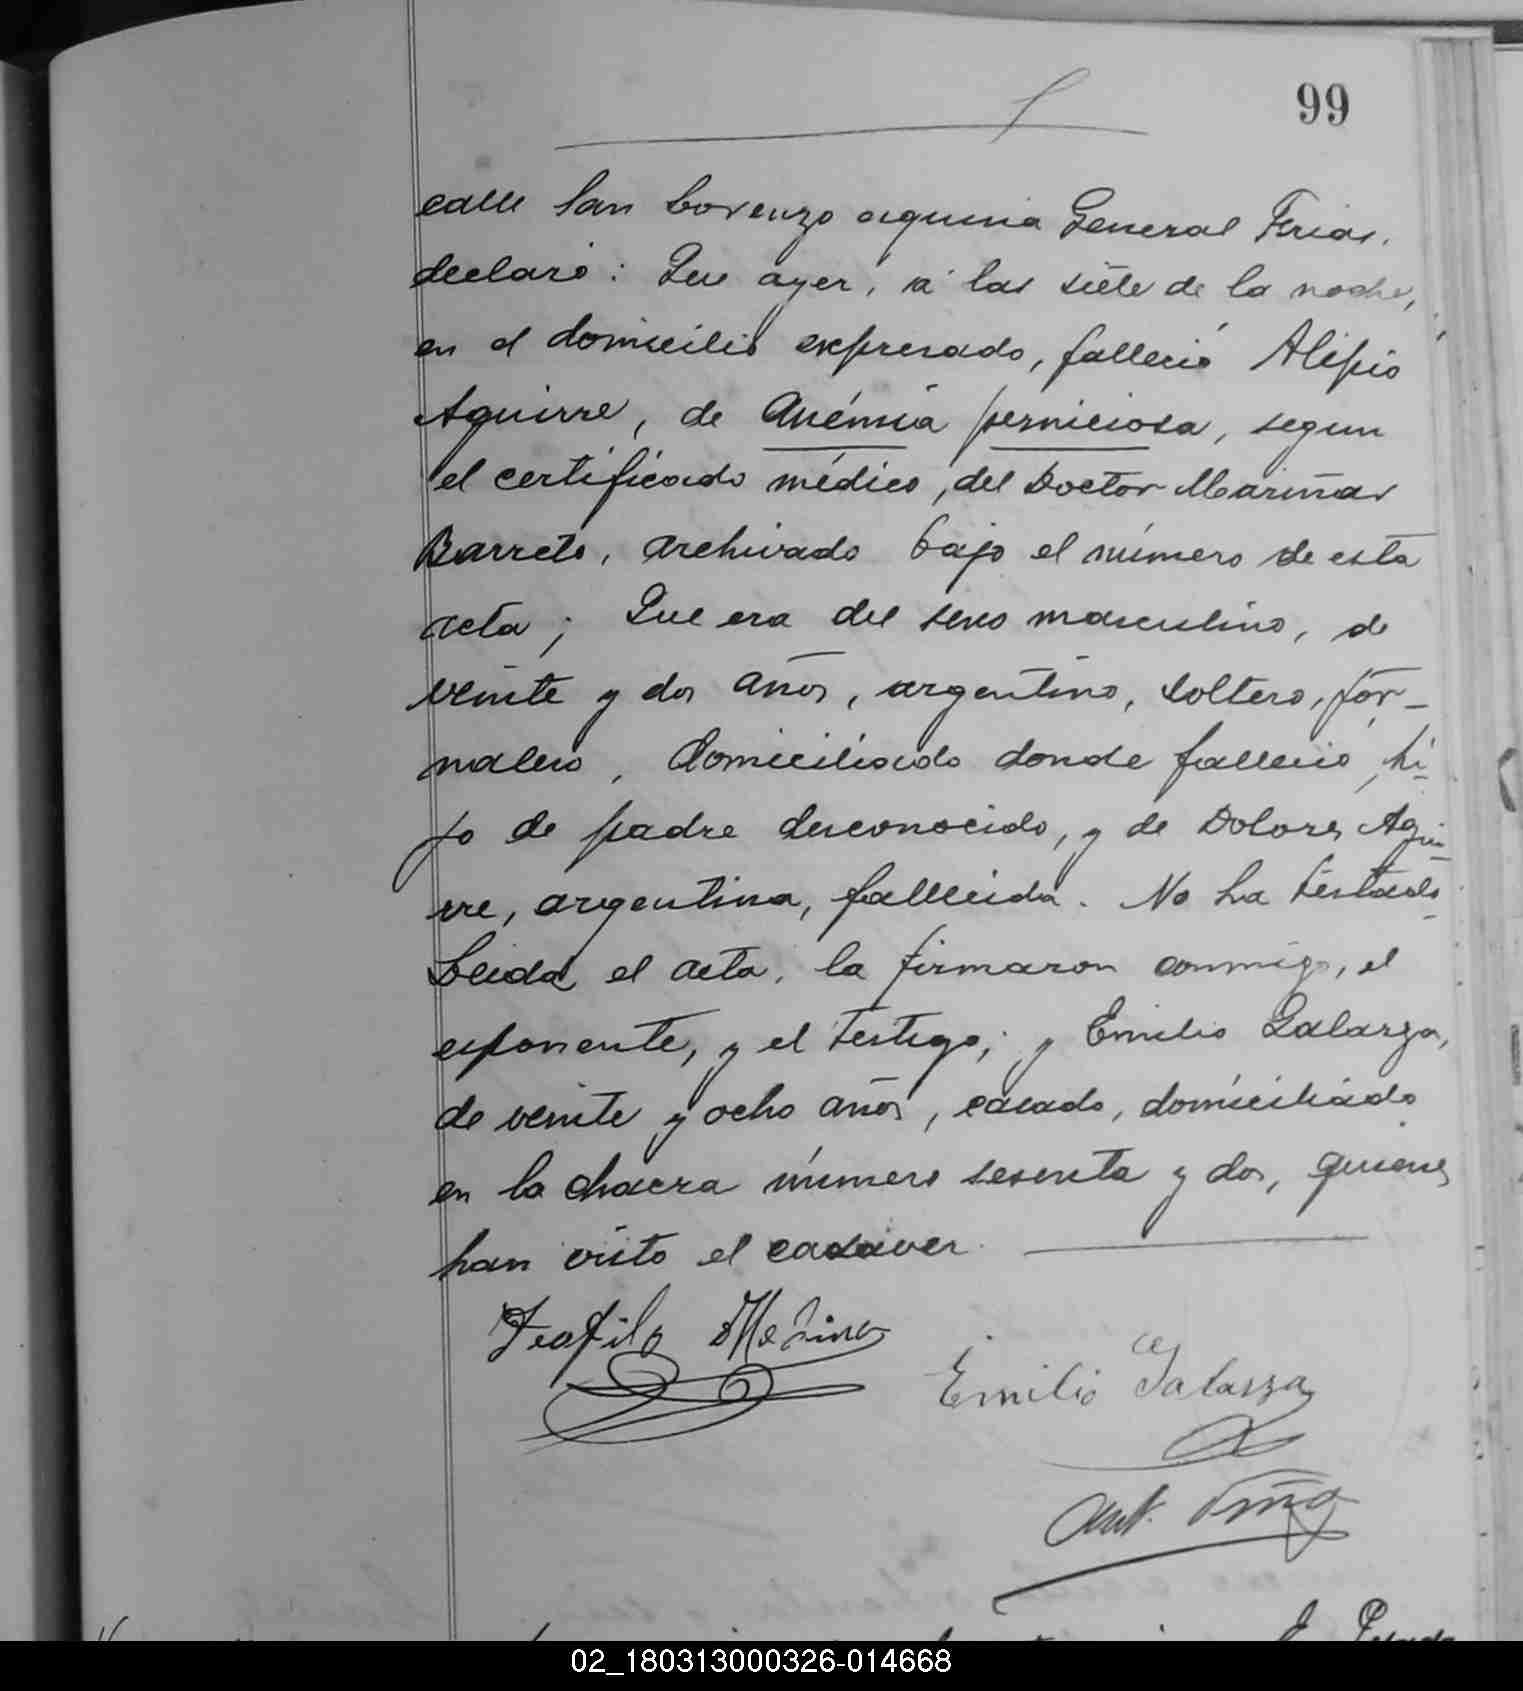 99
calle San Lorenzo esquina General Frias,
declaró: Que ayer, á las siete de la noche,
en el domicilio expresado, falleció Alipio
Aguirre, de Anémia perniciosa, segun
el certificado médico, del Doctor Mariñas
Barreto, archivado bajo el número de esta
acta; Que era del sexo masculino, de
veinte y dos años, argentino, soltero, jor-
nalero, domiciliado donde falleció, hi-
jo de padre desconocido, y de Dolores Agui-
rre, argentina, fallecida. No ha testado
Leida el acta, la firmaron conmigo, el
esponente, y el testigo; y Emilio Galarza,
de veinte y ocho años, casado, domiciliado
en la chacra número sesenta y dos, quienes
han visto el cadaver.
Teofilo Medina
Emilio Galarza
Ant.
02_180313000326-014668